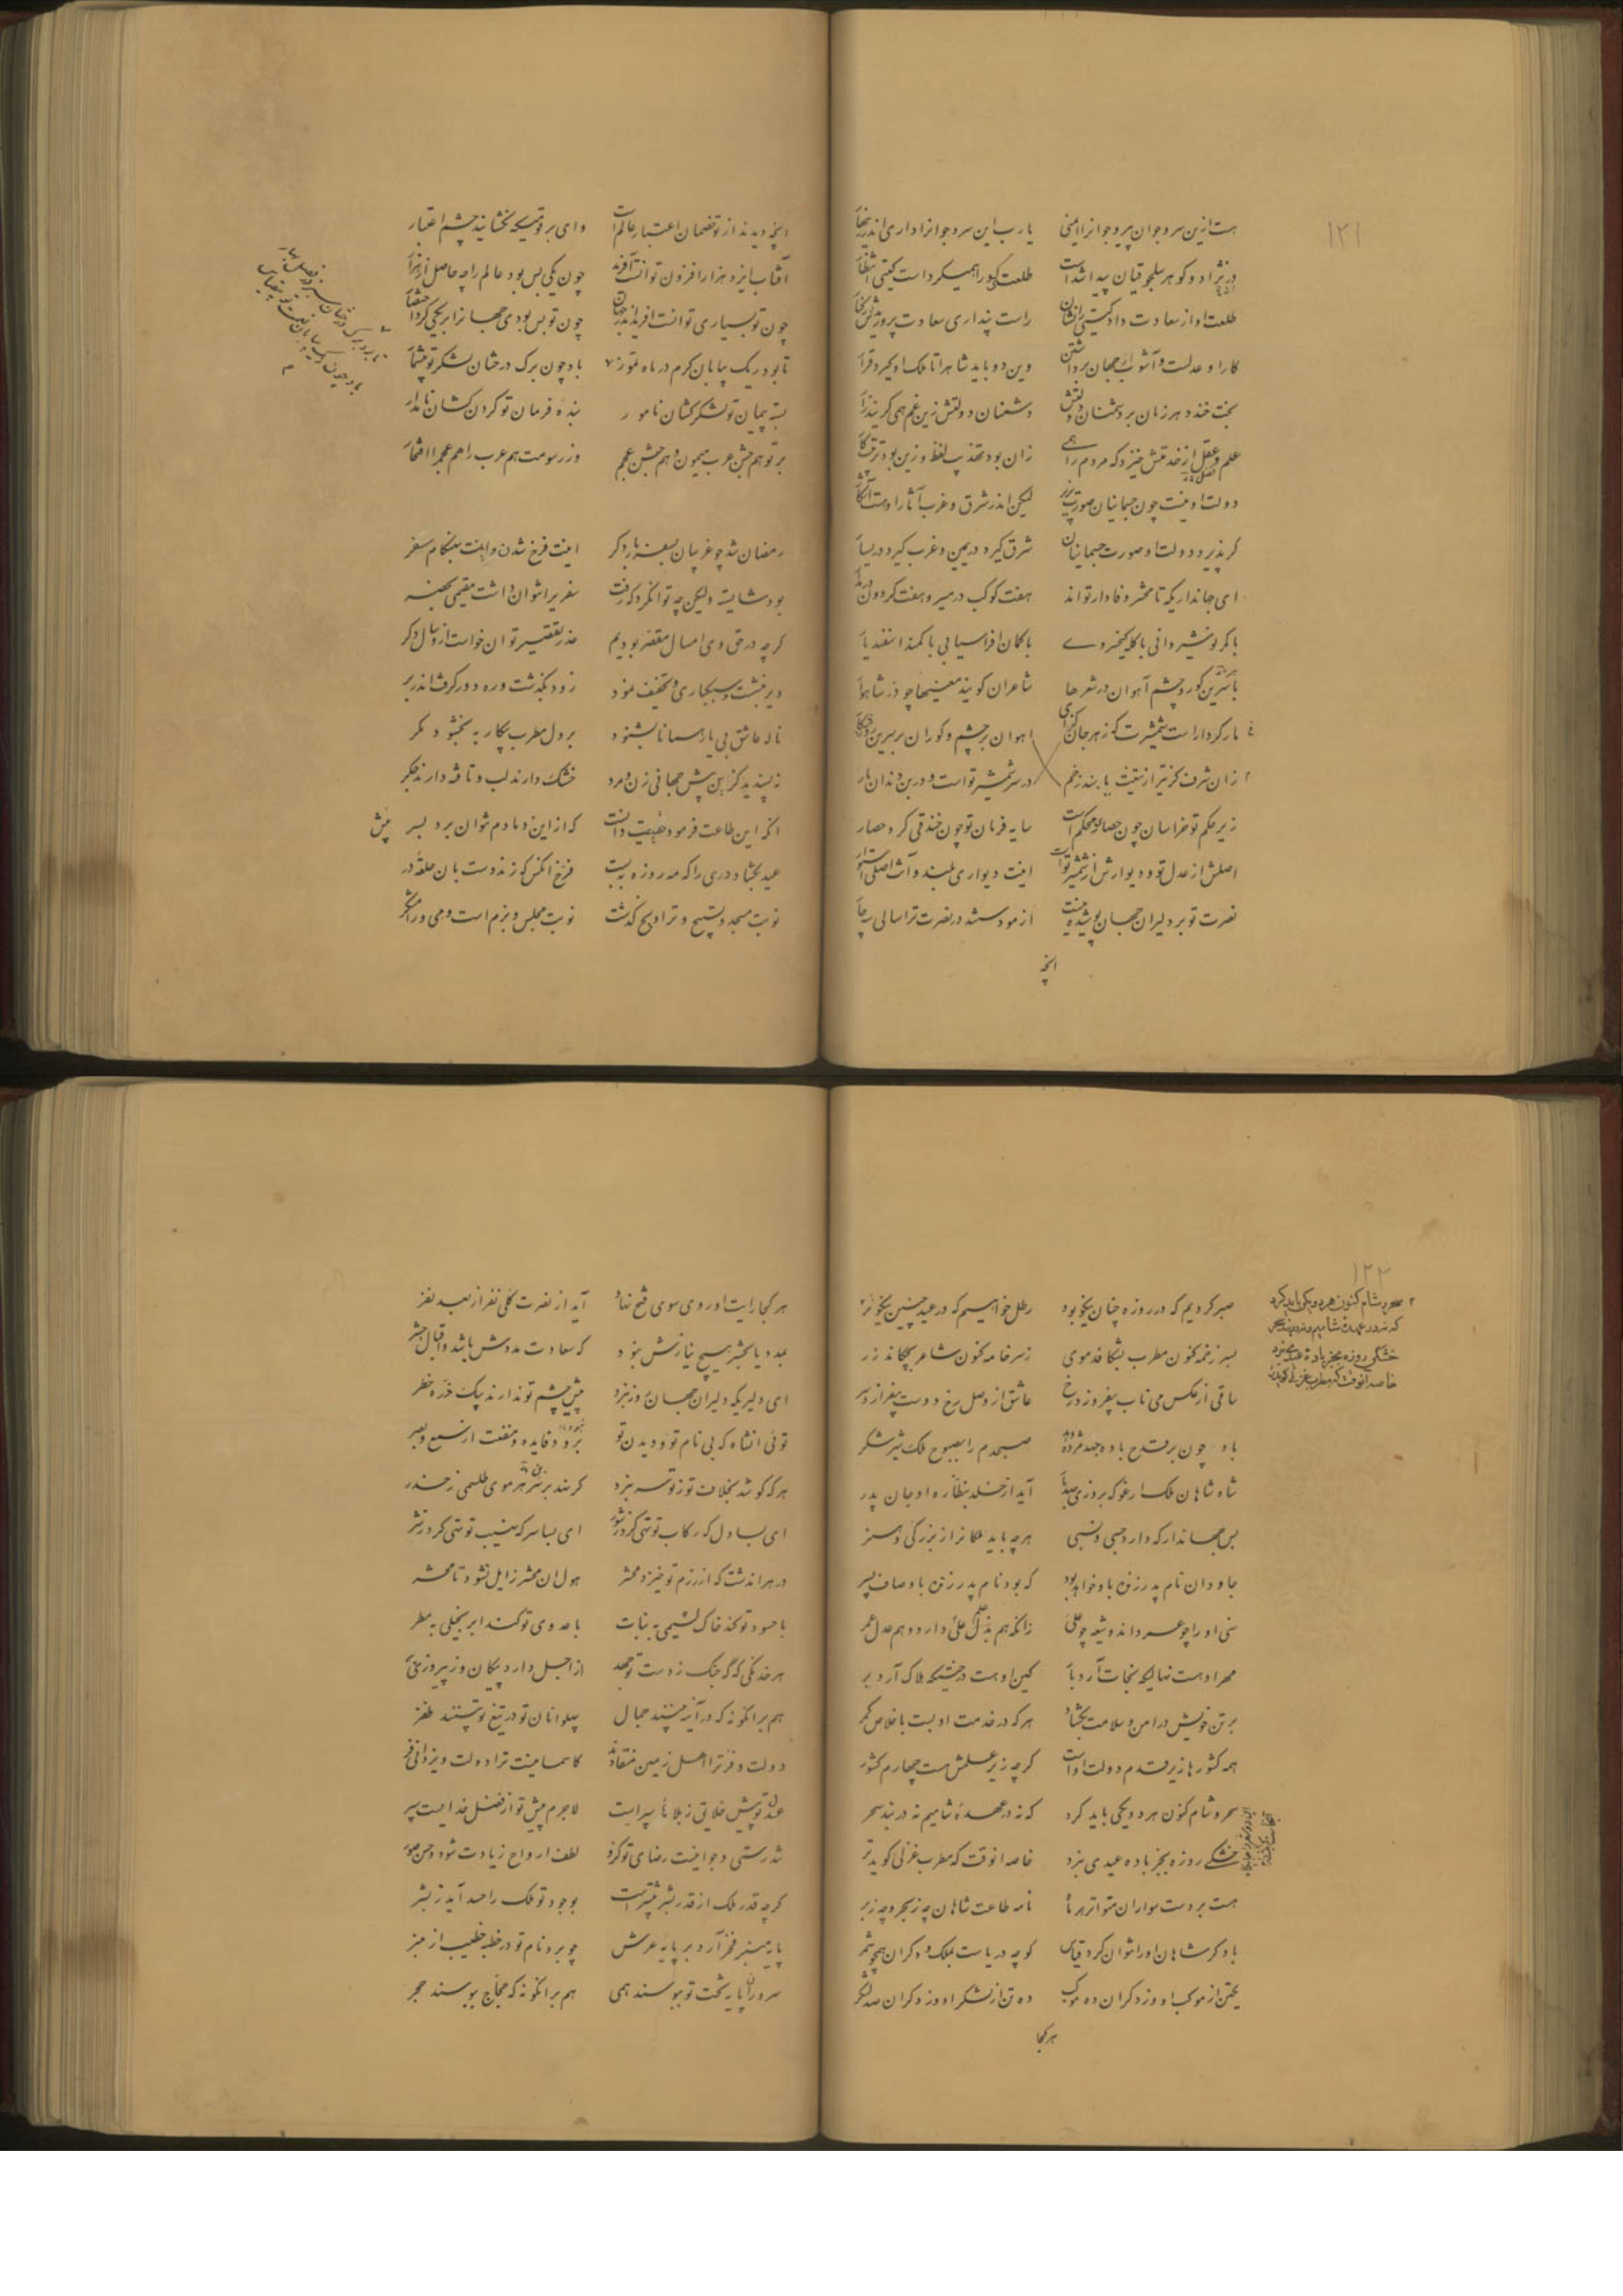 ١٢١
هست ازین سر و جوان پیر و جوانرا ایمنی یارب این سر و جوانرا داری اندر
در نژاد و گوهر سلجوقیان پیدا شداست طلعت کو را همیکرداست گیتی انتظار
طلعت او از سعادت داد گیتی را نشان راست پنداری سعادت پرورش
کار او عدلست و آشوب از جهان برداشتن وین دو باید شاهرا تا ملک او گیرد قرار
بخت خندد هر زمان بر دشمنان دولتش دشمنان دولتش زین غم همی گریند زار
علم و عقل از خدمتش خیزد که مردم را همی زان بود تهذیب لفظ و زین بود ترتیب کار
دولت او نیست چون جسمانیان صورت پذیر لیکن اندر شرق و غرب آثار اوهست آشکار
گر پذیرد دولت او صورت جسمانیان شرق گیرد در یمین و غرب گیرد در یسار
ای جانداریکه تا محشر وفادار تواند هفت کوکب در مسیر و هفت گردون در مدار
با کمر نوشیروانی با کله کیخسروی با کمان افراسیابی با کمند اسفندیار
با سرین گور و چشم آهوان در شعرها شاعران گویند معنیها چو در شاهوار
مار کردار است شمشیرت که زهر جان گزای آهوان بر چشم و گوران بر سرین
زان شرف کز تیر و از تیغت بیابند زخم در سر شمشیر تو است و در بن دندان مار
زیر حکم تو خراسان چون حصار محکم است سایه فرمان تو چون خندقی گرد حصار
اصلش از عدل تو و دیوارش از شمشیر تو است اینت دیواری بلند و آنت اصلی استوار
نصرت تو بر دلیران جهان پوشیده نیست آزموده شد در نصرت ترا سالی چهار
انچه
انچه دیدند از تو خصمان اعتبار عالم است وای بر قومیکه نگشایند چشم اعتبار
آفتاب ایزد هزار افزون توانست آفرید چون یکی بس بود عالم را چه حاصل از هزار
چون تو بسیاری توانست آفریند در جهان چون تو بس بودی جهانرا بر یکی کرد اختصار
تا بود ریک بیابان گرم در ماه تموز باد چون برک درختان لشکر تو بیشمار
بسته پیمان تو لشکر کشان نامور بنده فرمان تو گردن کشان نامدار
بر تو هم جشن عرب میمون و هم جشن عجم وز رسومت هم عرب را هم عجم را افتخار
تا بود برک درختان سبز در فصل بهار
باد چون ریک بیابان
رمضان شد چو غریبان بسفر بار دگر اینت فرخ شدن و اینت بهنگام سفر
بود شایسته ولیکن چه توان کرد که رفت سفریرا نتوان داشت مقیمی بحضر
گرچه در حق وی امسال مقصر بودیم عذر تقصیر توان خواست ازو سال دگر
دیر ننشست و سبکباری و تخفیف نمود زود بگذشت و ره دور گرفت اندر بر
ناله عاشق بی یار همانا بشنود بر دل مطرب بیکار ببخشود مگر
نپسندید کزین بیش جهانی زن و مرد خشک دارند لب و تافته دارند جگر
آنکه این طاعت فرمود حقیقت دانست که از این دمادم نتوان برد بسر بیش
عید بگشاد دری را که مه روزه ببست فرخ آنکس که زند دست بان حلقه در
نوبت مسجد و تسبیح و تراویح گذشت نوبت مجلس و بزم است و می و رامشگر
١٢٢
صبر کردیم که در روزه چنان نیکو بود رطل خواهیم که در عید چنین نیکوتر
بسر زخمه کنون مطرب بشکافد موی ز سر خامه کنون شاعر بچکاند زر
ساقی از عکس می ناب بیفروزد رخ عاشق از وصل رخ دوست بیفرازد سر
باد چون بر قدح باده جهد مژده دهد صبحدم را بصبوح ملک شیر شکر
شاه شاهان ملک ارغو که بروزی صد بار آید از خلد بنظاره او جان پدر
بس جهاندار که دارد حسبی و نسبی هر چه باید ملکانرا ز بزرگی و هنر
جاودان نام پدر زنده باو خواهد بود که بود نام پدر زنده باوصاف پسر
سنی او را چو عمر داند و شیعه چو علی زانکه هم بذل علی دارد و هم عدل عمر
مهر او هست نهالیکه نجات آرد بار کین او هست درختیکه هلاک آرد بر
بر تن خویش در امن و سلامت بگشاد هر که در خدمت او بست باخلاص کمر
همه کشورها زیر قدم دولت اوست گرچه زیر علمش هست چهارم کشور
سحر و شام کنون هر دو یکی باید کرد که نه در عهده شامیم نه در بند سحر
خشکی روزه بجز باده عیدی نبرد خاصه آنوقت که مطرب غزلی گوید تر
هست بر دست سواران متواتر هر ماه نامه طاعت شاهان چه ز بحر و چه ز بر
با دگر شاهان او را نتوان کرد قیاس کو چه دریاست بملک و دگران همچو شمر
یک تن از موکب او وز دگران ده موکب ده تن از لشکر او وز دگران صد لشکر
سحر و شام کنون هر دو یکی باید کرد
که نه در عهده شامیم و نه در بند سحر
خشکی روزه بجز باده عیدی نبرد
خاصه آنوقت که مطرب غزلی گوید تر
هر کجا
هر کجا رایت او روی سوی فتح نهاد آید از نصرت کلی نفر از بعد نفر
بمدد یا بحشر هیچ نیازش نبود که سعادت مددش باشد و اقبال حشر
ای دلیریکه دلیران جهان روز نبرد پیش چشم تو ندارند بیک ذره خطر
توئی آنشاه که بی نام تو و دیدن تو برود فایده و منفعت از سمع و بصر
هر که کوشد بخلاف تو ز تو سر نبرد گر بندد بر سر هر موی طلسمی ز حذر
ای بسا دل که رکاب تو تهی کرد ز شور ای بسا سر که نهیب تو تهی کرد ز شر
در هر آندشت که از رزم تو خیزد محشر هول آن محشر زایل نشود تا محشر
با حسود تو کند خاک لئیمی به نبات با عدوی تو کند ابر بخیلی به مطر
هر خدنگی که گه جنک ز دست تو جهد از اجل دارد پیکان و ز پیروزی پر
هم بر آنگونه که در آینه بینند جمال پهلوانان تو در تیغ تو بینند ظفر
دولت و فر ترا اهل زمین منقادند کاسمانیست ترا دولت و یزدانی فر
عدل تو پیش خلایق ز بلاها سپر است لاجرم پیش تو از فضل خدایست سپر
تندرستی و جوانیست رضای تو کزو لطف ارواح زیادت شود و حسن صور
گرچه قدر ملک از قدر بشر بیشتر است بوجود تو ملک را حسد آید ز بشر
پایه منبر فخر آرد بر پایه عرش چو برد نام تو در خطبه خطیب از منبر
سروران پایه تخت تو ببوسند همی هم بر آنگونه که حجاج ببوسند حجر